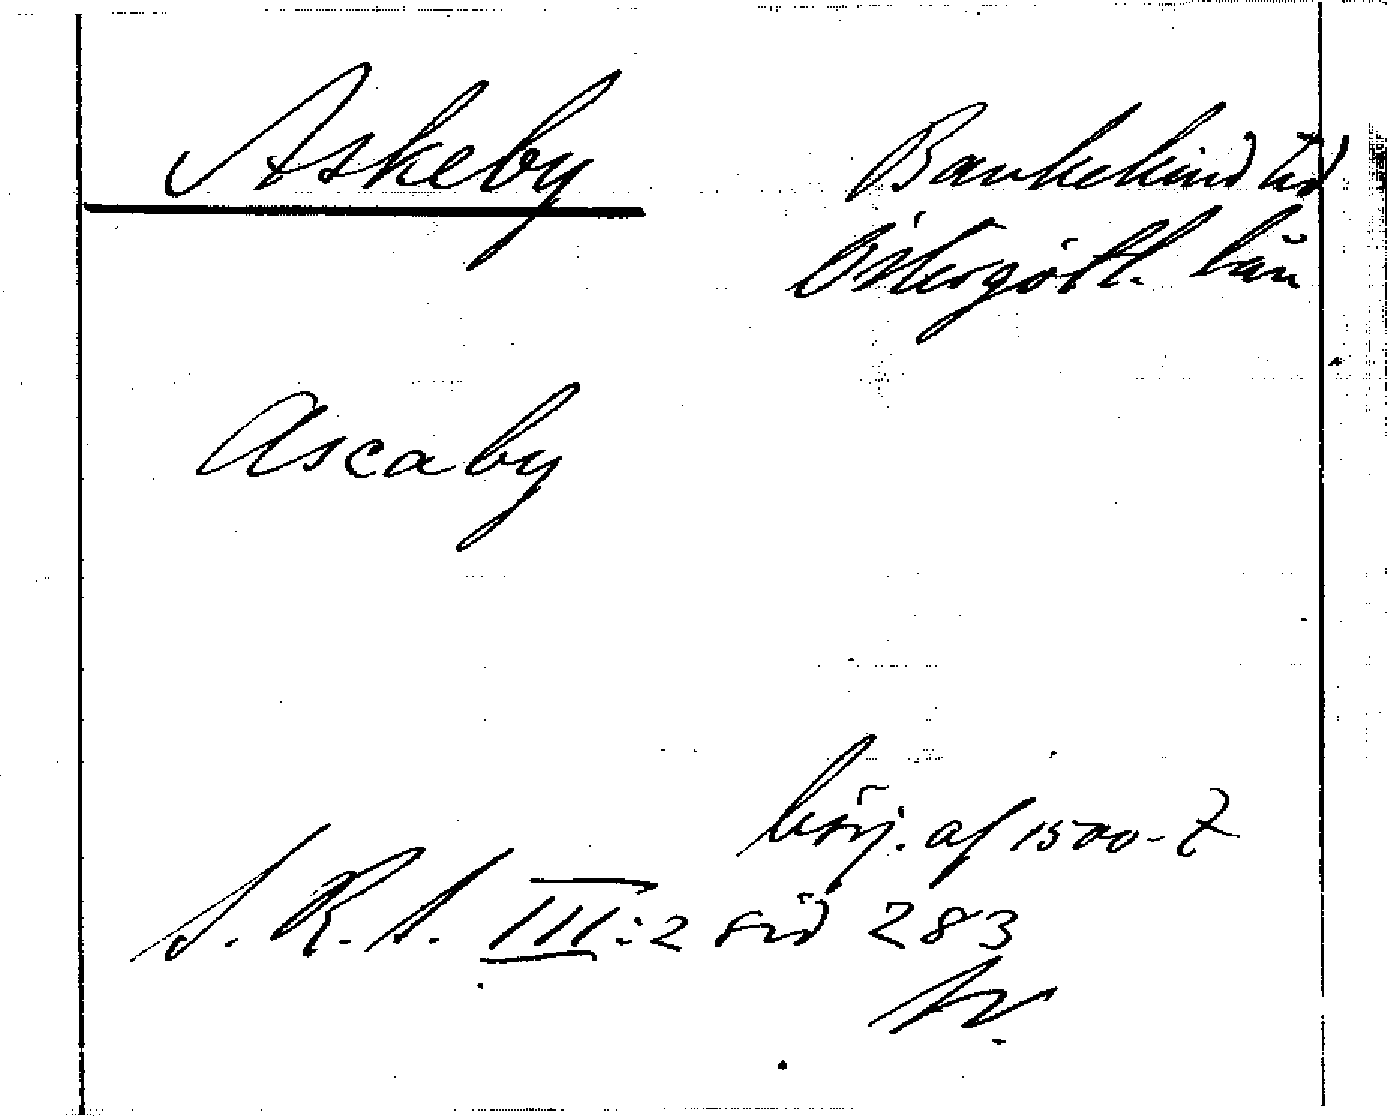 Askeby
Bankekind hd
Östergötl. län
Ascaby
börj. af 1500-t
S. R. S. III:2 sid 283